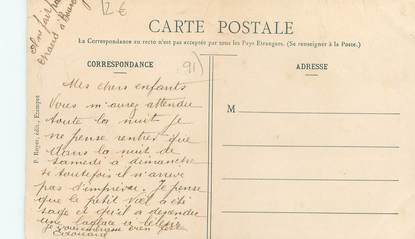 12 €
CARTE POSTALE
La Correspondance au recto n'est pas acceptée par tous les Pays Etrangers. (Se renseigner à la Poste.)
CORRESPONDANCE
91)
ADRESSE
Mes chers enfants
Vous m'aurez attendu
toute la nuit je
ne pense rentrer que
dans la nuit de
samedi à dimanche
si toutefois il n'arrive
pas d'imprévu. Je pense
que le petit a été
sage et qu'il a
une
je vous bien
Edouard
M
P. Royer, édit., Etampes